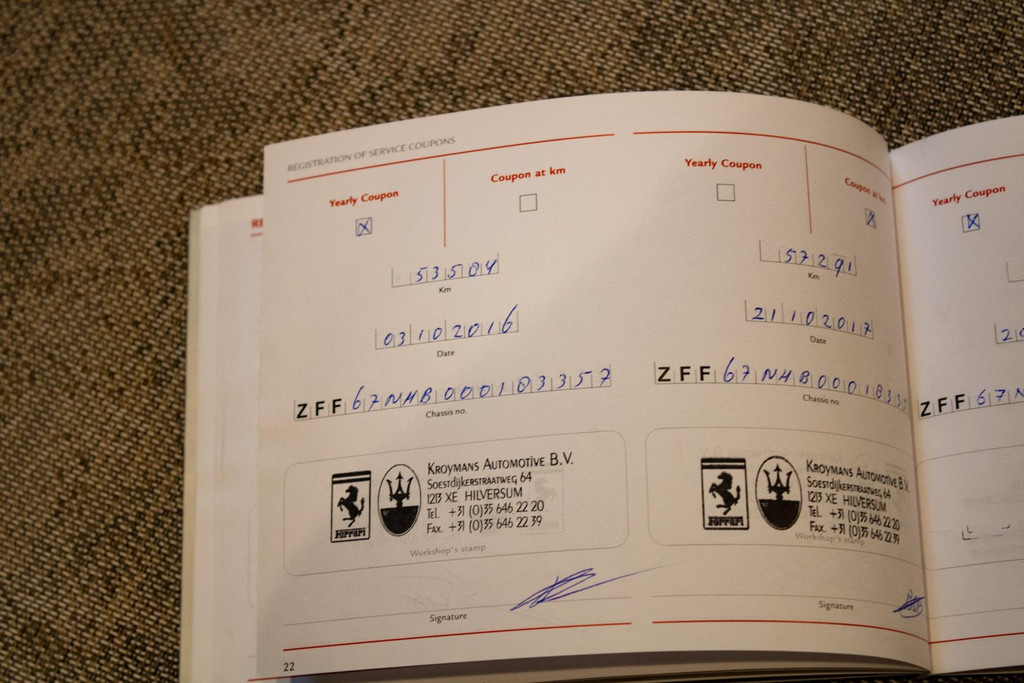 REGISTRATION OF SERVICE COUPONS
Yearly Coupon
Coupon at km
53504
Km
03102016
Date
ZFF67NHB000183357
Chassis no.
Ferrari
KROYMANS AUTOMOTIVE B.V.
SOESTDIJKERSTRAATWEG 64
1213 XE HILVERSUM
TEL. +31 (0)35 646 22 20
FAX. +31 (0)35 646 22 39
Workshop's stamp
Signature
22
Yearly Coupon
Coupon at km
57291
Km
21102017
Date
ZFF67NHB0001833
Chassis no.
Ferrari
KROYMANS AUTOMOTIVE B.V.
SOESTDIJKERSTRAATWEG 64
1213 XE HILVERSUM
TEL. +31 (0)35 646 22 20
FAX. +31 (0)35 646 22 39
Workshop's stamp
Signature
Yearly Coupon
ZFF67N